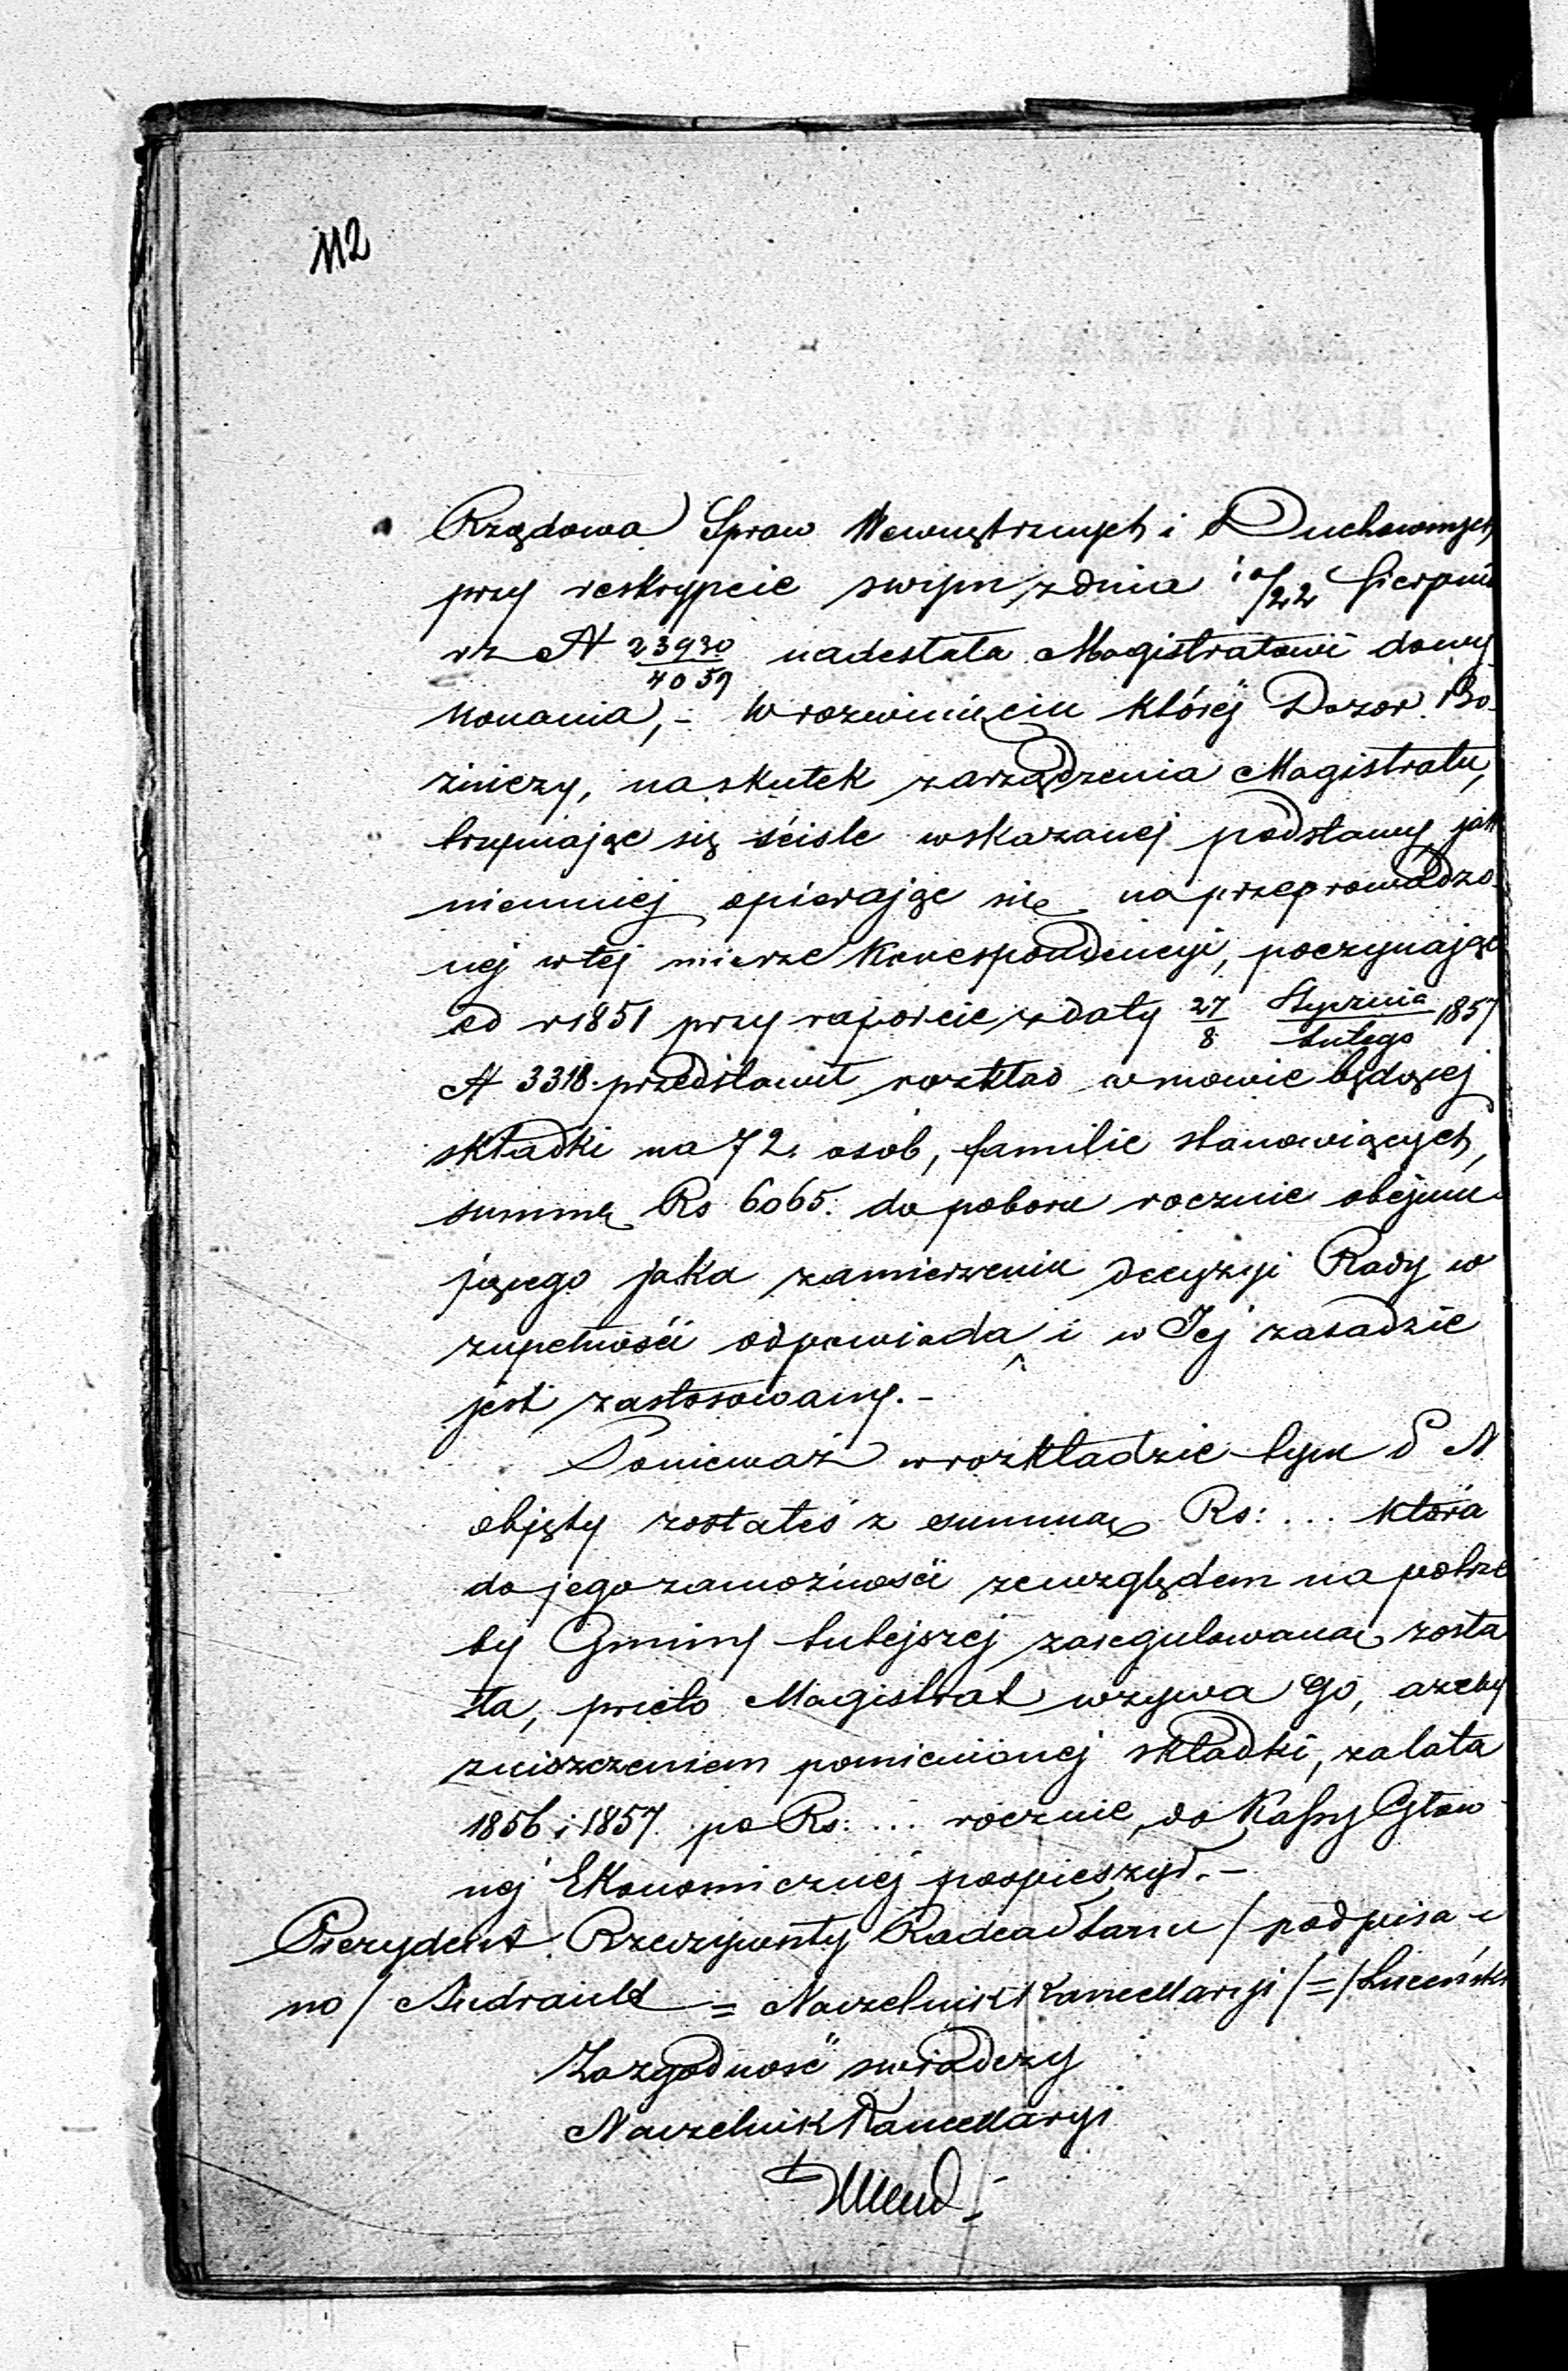 112
Rządowa Spraw Wewnętrznych i Duchownych
przy reskrypcie swym z dnia 10/22 Sierpnia
rz N 23930/4059 nadesłała Magistratowi dowy-
konania, - W rozwinięciu której Dozor Bo-
żniczy, naskutek zarządzenia Magistratu,
trzymając się ściśle wskazanej podstawy jak
niemniej opierając się na przeprowadzo-
nej wtej mierze korrespondencyi, poczynając
od r 1851 przy raporcie z daty 27/8 Stycznia/Lutego 1857
N 3318. przedstawił rozkład wmowie będącej
składki na 72. osob, familie stanowiących,
summę Rs 6065. do poboru rocznie obejmu-
jącego jaka zamierzeniu decyzyi Rady w
zupełności odpowiada i w Jej zasadzie
jest zastosowany. -
Ponieważ wrozkładzie tym P N
objęty zostałeś z summą Rs: ... która
do jego zamożności zewzględem na potrze
by Gminy tutejszej zaregulowana zosta
ła, przeto Magistrat wzywa Go, ażeby
zniszczeniem pomienionej składki, zalata
1856 i 1857 po Rs: ... rocznie, do Kassy Głow-
nej Ekonomicznej pospieszył. -
Prezydent Rzeczywisty Radca Stanu / podpisa-
no / Andrault = Naczelnik Kancellaryi /=/ Luceński
Za zgodność swiadczy
Naczelnik Kancellaryi